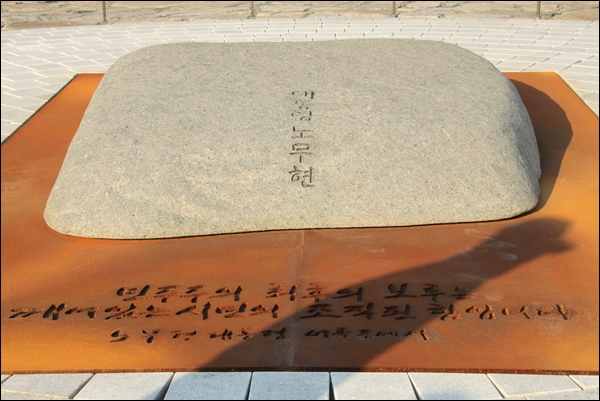 대통령 노무현
민주주의 최후의 보루는
깨어있는 시민의 조직된 힘입니다